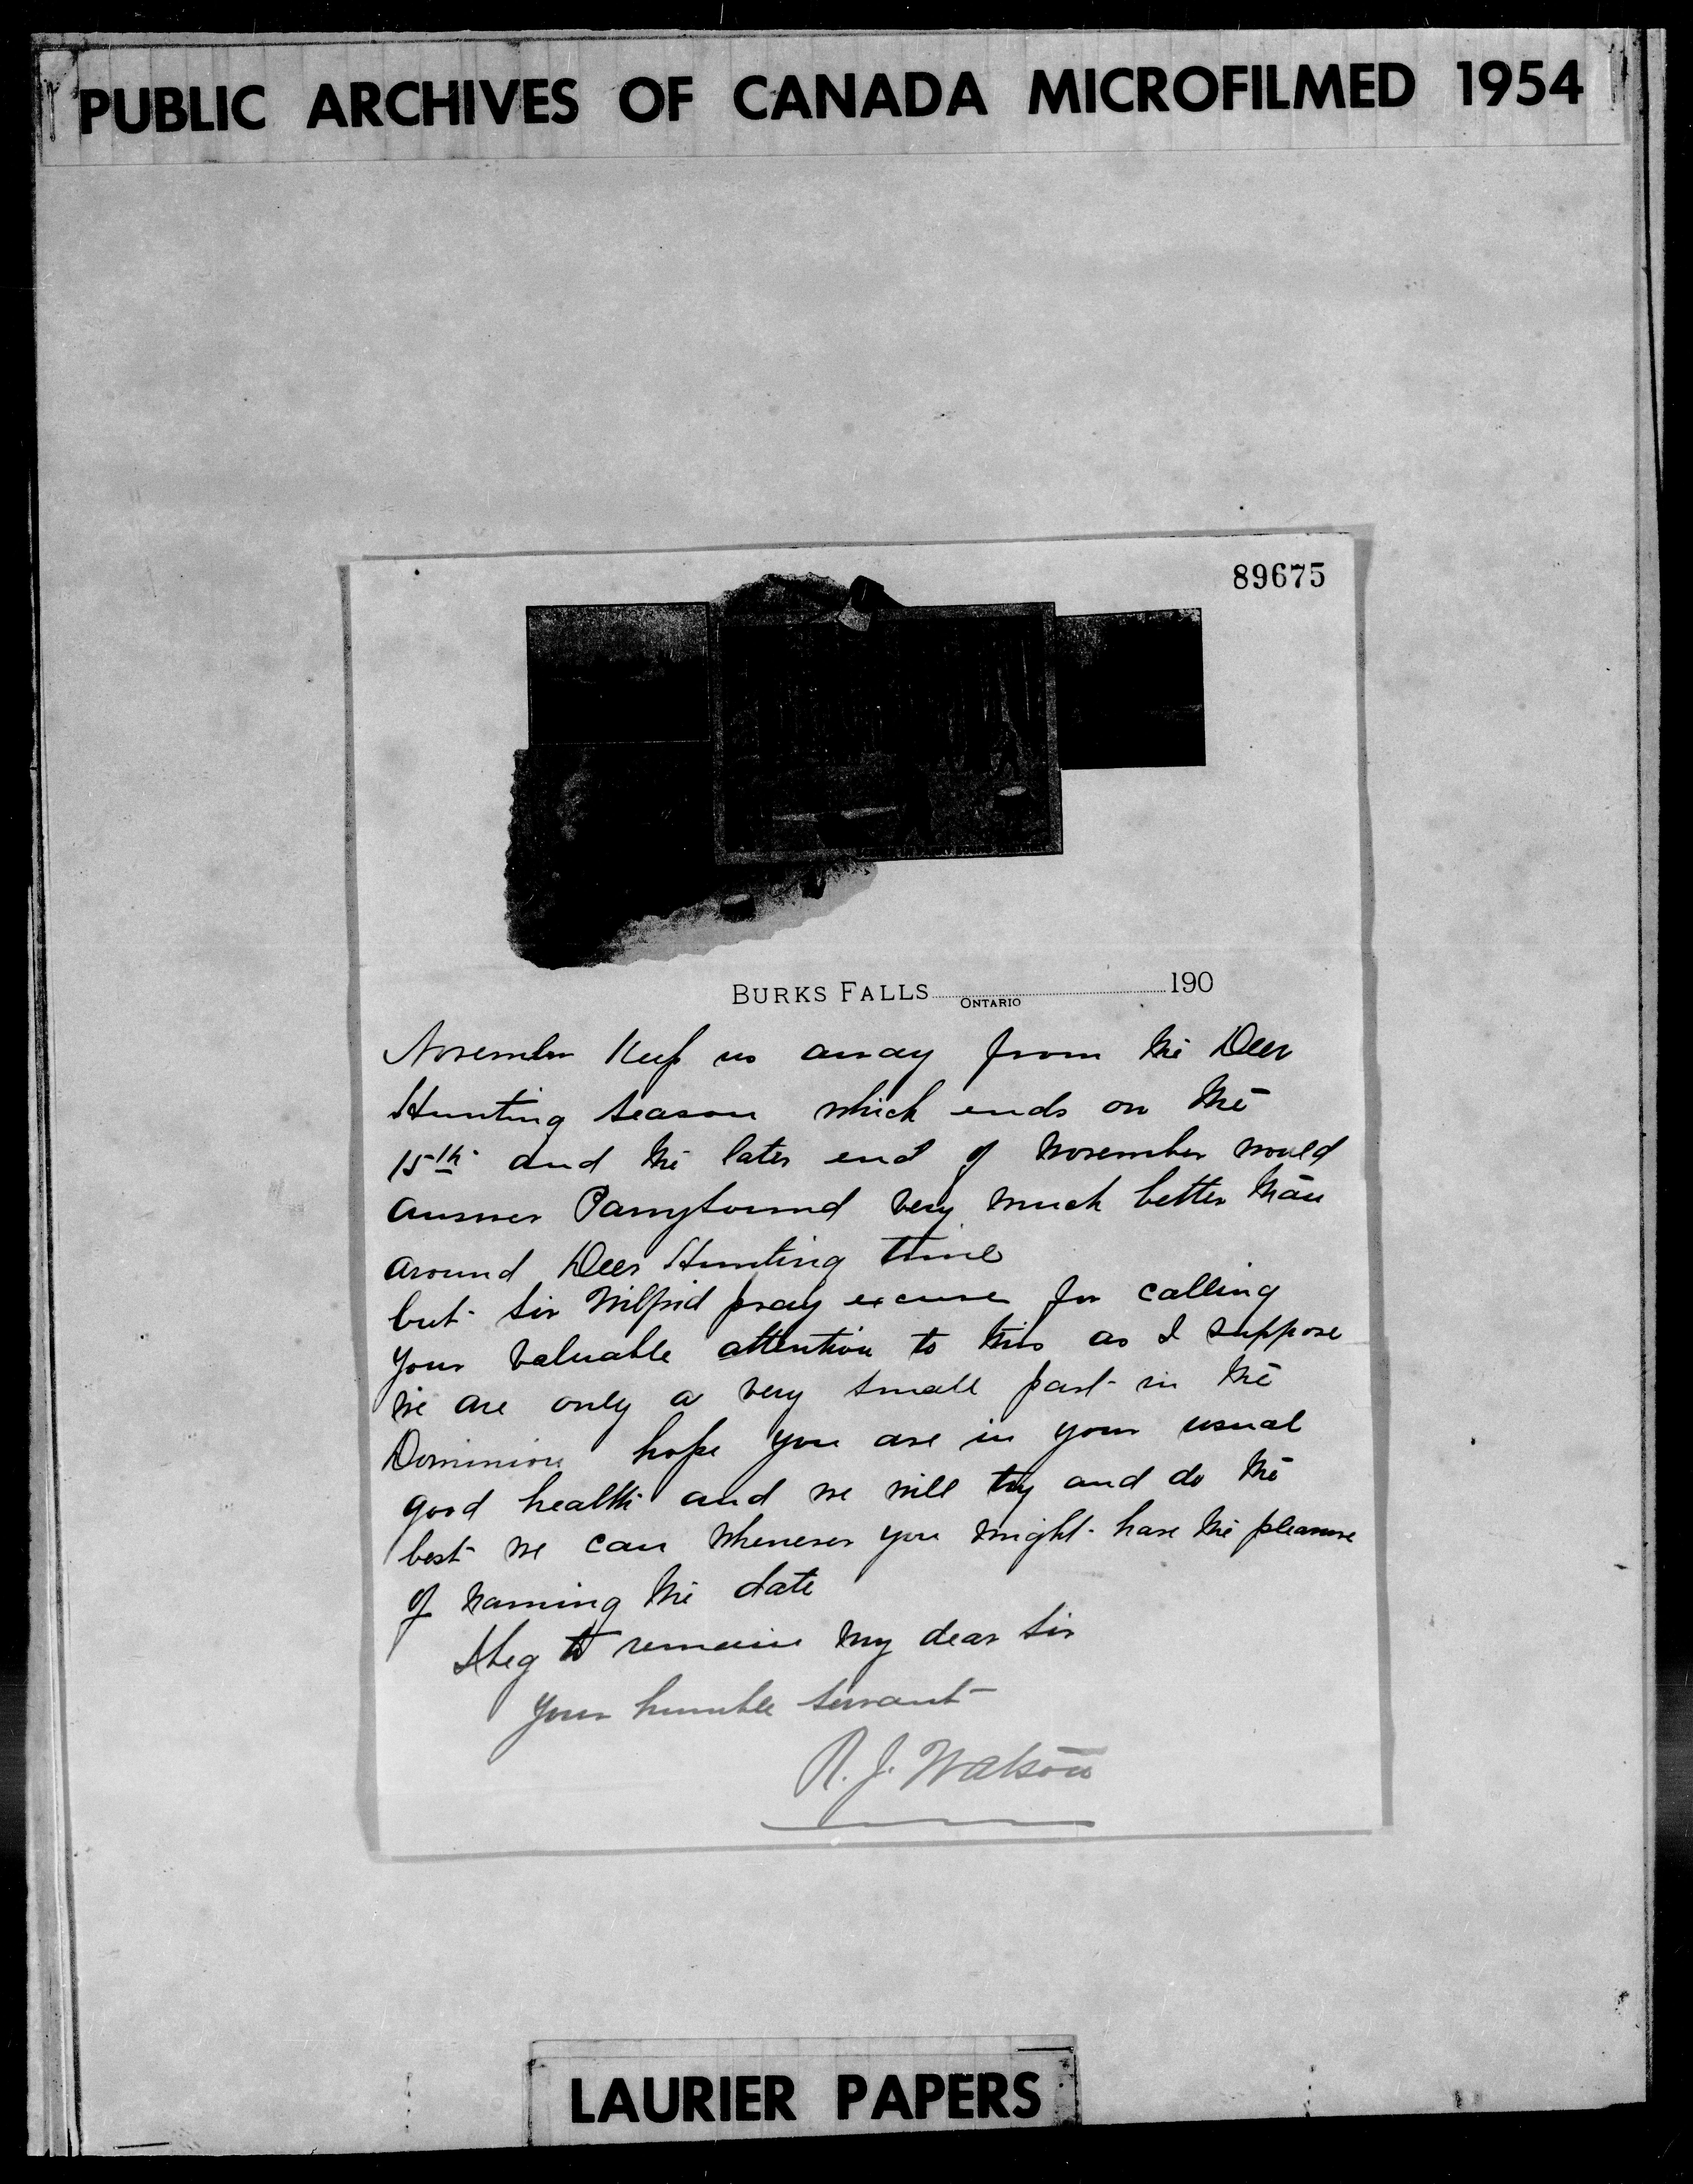 PUBLIC ARCHIVES OF CANADA MICROFILMED 1954
89675
BURKS FALLS ONTARIO 190
November Keep us away from the Deer
Hunting season which ends on the
15th and the later end of November would
answer Parrysound very much better than
around Deer Hunting time
but Sir Wilfrid pray excuse for calling
your valuable attention to this as I suppose
we are only a very small part in the
Dominion hope you are in your usual
good health and we will try and do the
best we can whenever you might have the pleasure
of naming the date
I beg to remain my dear Sir
Your humble servant
R. J. Watson
LAURIER PAPERS